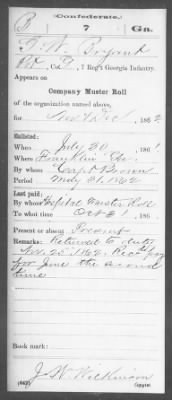 Confederate.
B 7 Ga.
F. W. Bryant
Pvt, Co. F, 7 Reg't Georgia Infantry.
Appears on
Company Muster Roll
of the organization named above,
for Nov & Dec, 1862.
Enlisted:
When July 30, 1861
Where Franklin Ga.
By whom Capt Brown
Period May 31, 1862
Last paid:
By whom Hospital Muster Roll
To what time Oct 31, 186 .
Present or absent Present
Remarks: Returned to duty
Nov. 25 1862. Rec'd pay
for June the second
time
Book mark:
J. W. Wilkinson
(642) Copyist.